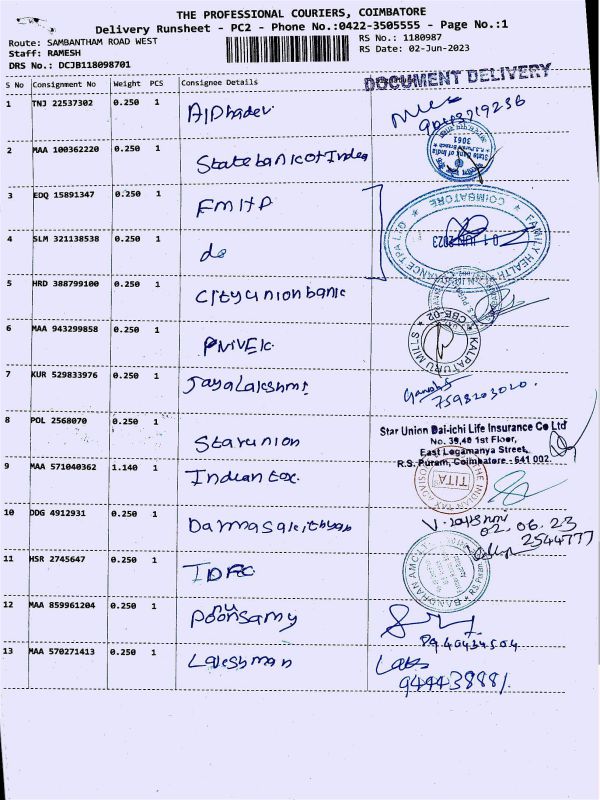 THE PROFESSIONAL COURIERS, COIMBATORE
Delivery Runsheet - PC2 - Phone No.:0422-3505555 - Page No.:1
Route: SAMBANTHAM ROAD WEST
RS No.: 1180987
Staff: RAMESH
RS Date: 02-Jun-2023
DRS No.: DCJB118098701
DOCUMENT DELIVERY
S No Consignment No Weight PCS Consignee Details
1 TNJ 22537302 0.250 1
2 MAA 100362220 0.250 1 State bank of India
State Bank of India
3061
3 EDQ 15891347 0.250 1 FMITA
FAMILY HEALTH TPA LTD COIMBATORE
4 SLM 321138538 0.250 1 do
01 JUN 2023
5 HRD 388799100 0.250 1 City union bank
6 MAA 943299858 0.250 1
KALPATURU MILLS CBE-02
7 KUR 529833976 0.250 1 Jaya Lakshmi
Ganesh
7598203020.
8 POL 2568070 0.250 1 Star union
Star Union Dai-ichi Life Insurance Co Ltd
No. 39,40 1st Floor,
East Logamanya Street,
R.S. Puram, Coimbatore - 641 002.
9 MAA 571040362 1.140 1 Indian tax.
THE INDIAN TAX ADVISOR
TITA
10 DDG 4912931 0.250 1
02.06.23
2544777
11 HSR 2745647 0.250 1 IDFC
BANDHAN AMC R.S. Puram
12 MAA 859961204 0.250 1 Ponnusamy
13 MAA 570271413 0.250 1 Lakshman